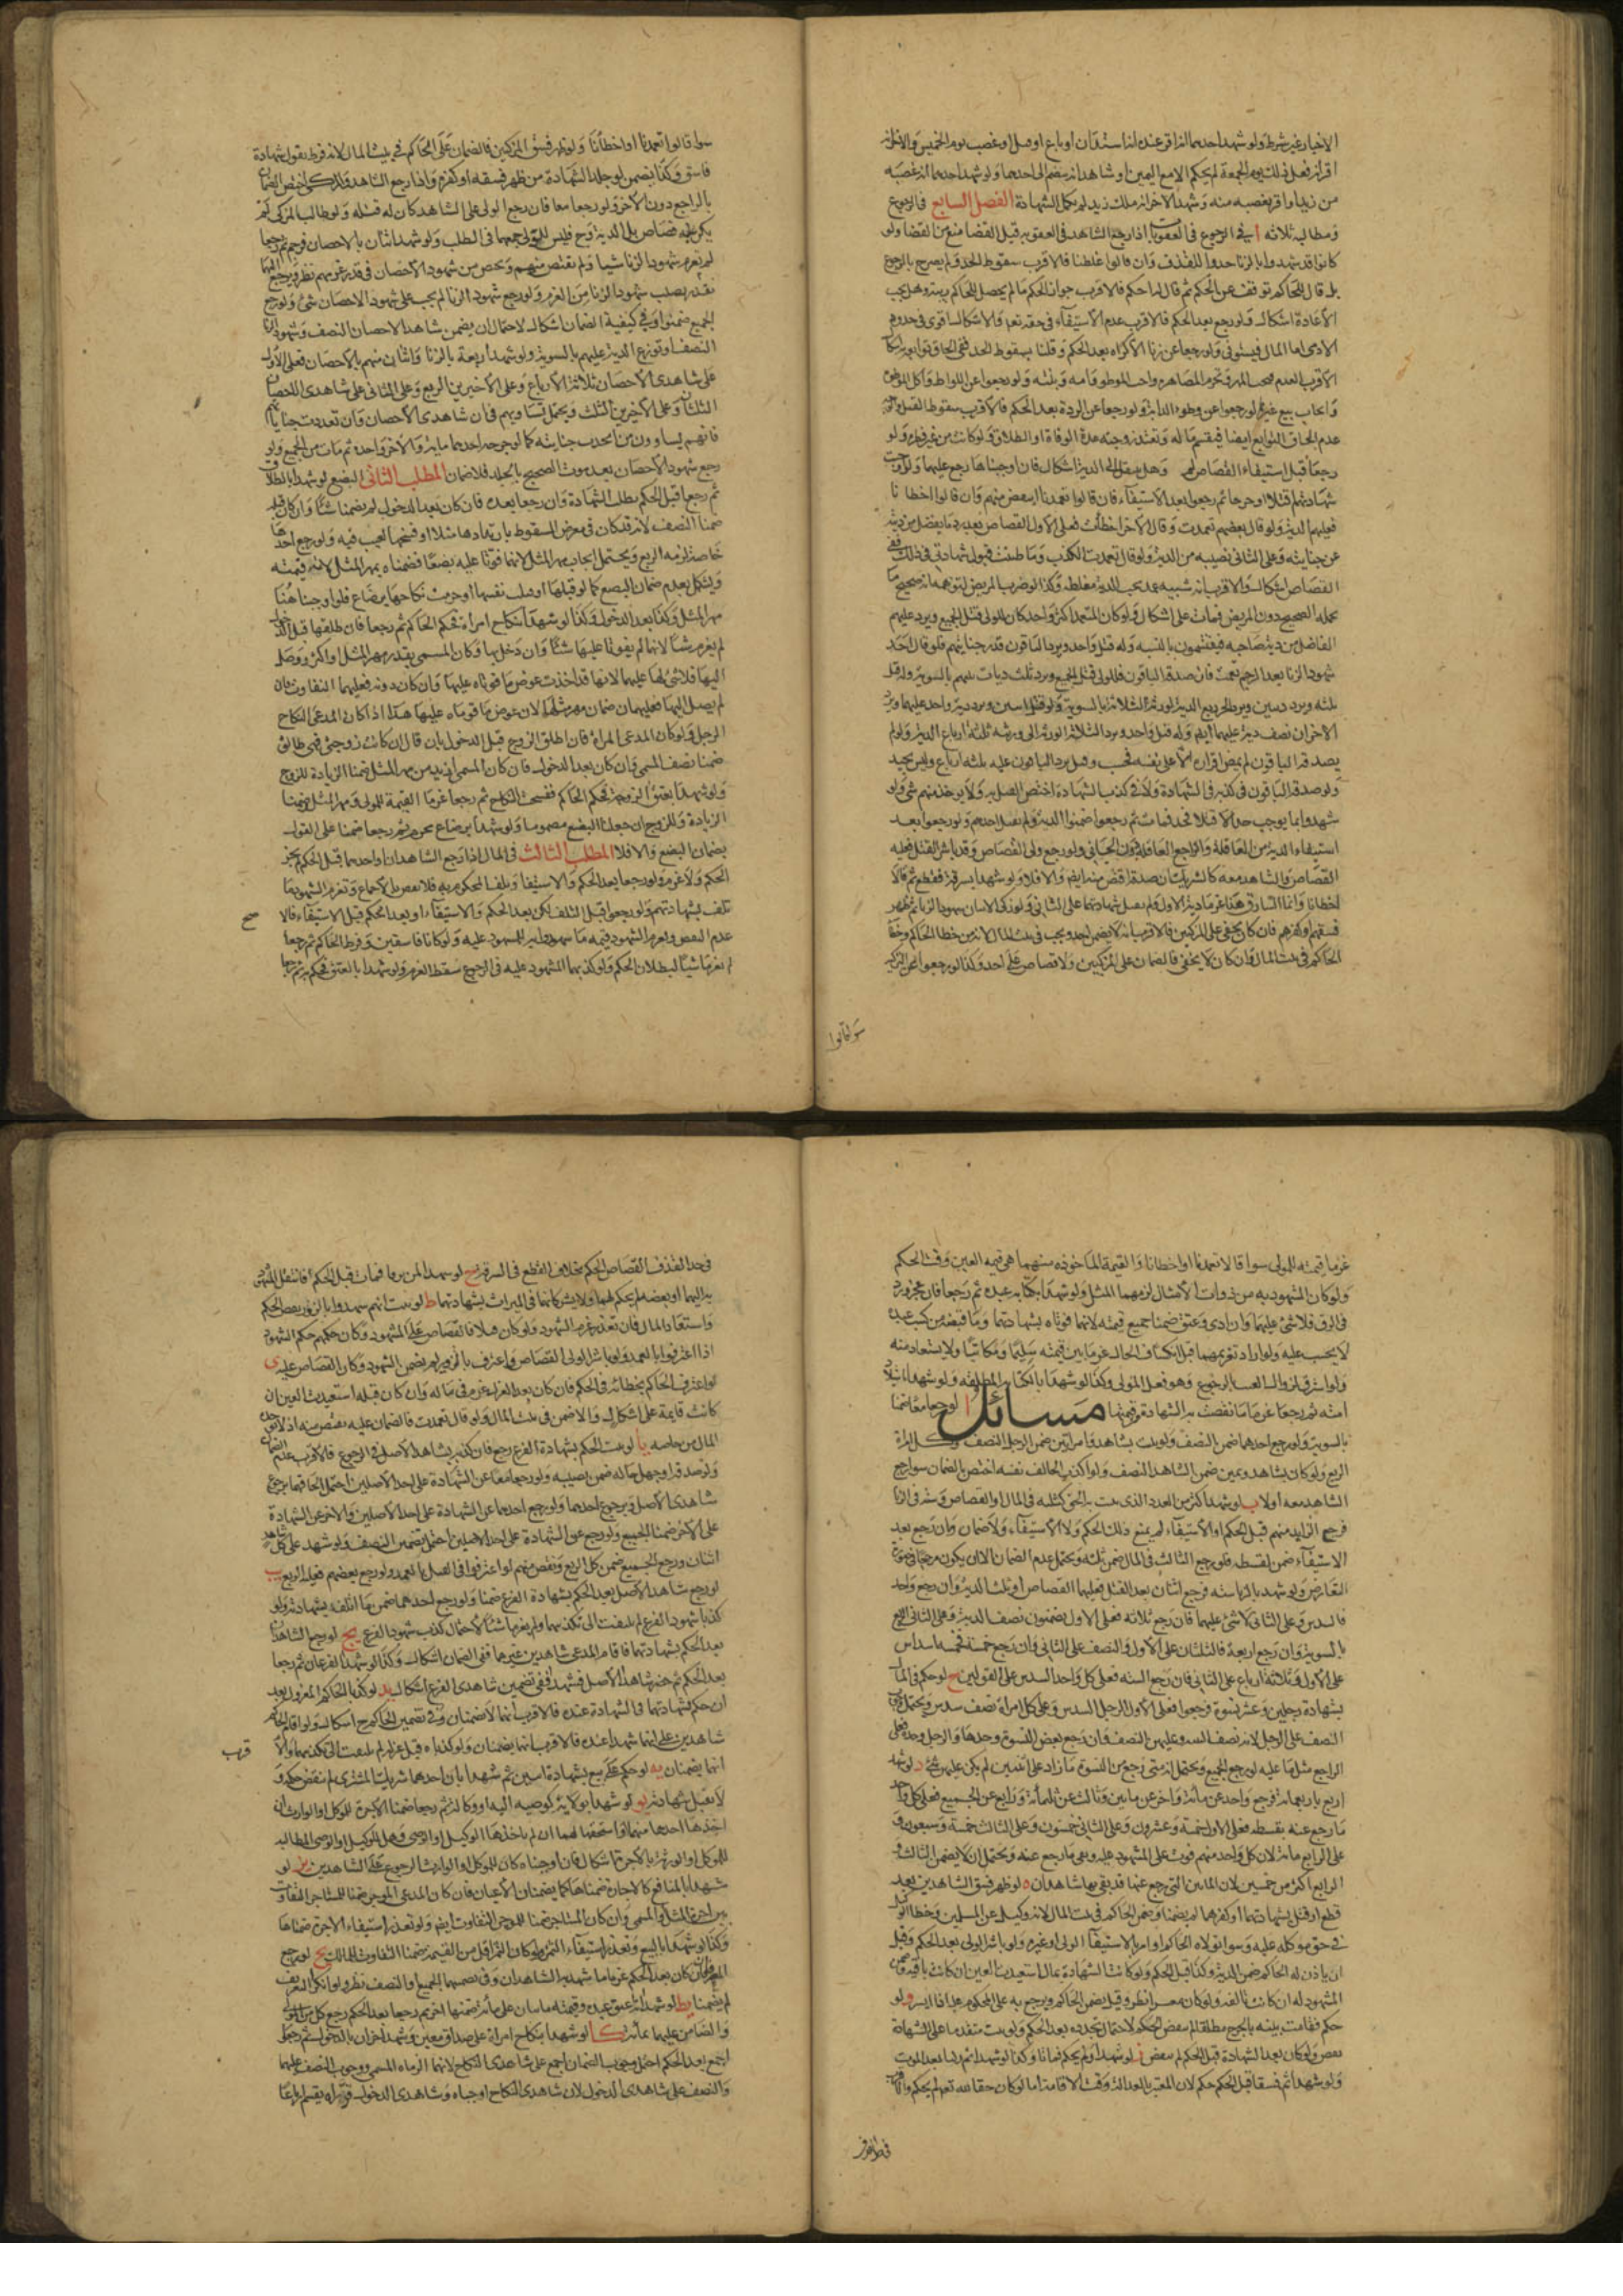 الاخبار غير شرط ولو شهد احدهما انه اقر عنده انه استدان او باع او قتل او غصب يوم الخميس والاخر انه
اقر انه فعل ذلك يوم الجمعة لم يحكم الا مع اليمين او شاهد اخر ينضم الى احدهما ولو شهد احدهما انه غصبه
من زيد او اقر بغصبه منه وشهد الاخر انه ملك زيد لم تكمل الشهادة الفصل السابع في الرجوع
ومطالبه ثلاثه ا في الرجوع في العقوبات اذا رجع الشاهد في العقوبة قبل القضا منع من القضا ولو
كانوا قد شهدوا بالزنا حدوا للقذف وان قالوا غلطنا فالاقرب سقوط الحد ولو لم يصرح بالرجوع
بل قال للحاكم توقف عن الحكم ثم قال له احكم فالاقرب جواز الحكم ما لم يحصل للحاكم ريبة وهل يجب
الاعادة اشكال ولو رجع بعد الحكم فالاقرب عدم الاستيفاء في حقه تعه والاشكال اقوى في حدود
الادمى اما المال فيستوفى ولو رجعا عن زنا الاكراه بعد الحكم وقلنا بسقوط الحد ففي الحاق توابعه اشكال
الاقرب العدم فيجب المهر وتحرم المصاهرة واخت الموطوء وامه وبنته ولو رجعوا عن اللواط واكل الموطوءة
وايجاب بيع غيرها لو رجعوا عن وطء الدابة ولو رجعا عن الردة بعد الحكم فالاقرب سقوط القتل والاقرب
عدم الحاق التوابع ايضا فيقسم ماله وتعتد زوجته عدة الوفاة او الطلاق ولو كانت من غير فطرة ولو
رجعا قبل استيفاء القصاص لم وهل ينتقل الى الدية اشكال فان اوجبناها رجع عليهما ولو اوجبت
شهادتهم قتلا او جرحا ثم رجعوا بعد الاستيفاء فان قالوا تعمدنا اقتص منهم وان قالوا اخطا نا
فعليهم الدية ولو قال بعضهم تعمدت وقال الاخر اخطأت فعلى الاول القصاص بعد رد ما يفضل من ديته
عن جنايته وعلى الثاني نصيبه من الدية ولو قال تعمدت الكذب وما ظننت قبول شهادتي في ذلك ففي
القصاص اشكال والاقرب انه شبيه عمد يجب الدية مغلظة وكذا لو ضرب المريض لتوهمه انه صحيح ما
يحمله الصحيح دون المريض فمات على اشكال ولو كان المتعمد اكثر من واحد كان للولى قتل الجميع ويرد عليهم
الفاضل من دية صاحبه فيقتسمونه بالنسبه وله قتل واحد ويرد الباقون قدر جنايتهم فلو قال احد
شهود الزنا بعد الرجم تعمدت فان صدقه الباقون فللولى قتل الجميع ويرد ثلث ديات بينهم بالسوية وله قتل
ثلثه ويرد ديتين ويرد الحي ربع الدية لورثة الثلاثة بالسوية وله قتل اثنين ويرد دية واحد عليهما ويرد
الاخران نصف دية عليهما ايضا وله قتل واحد ويرد الثلاثة الورثة الى ورثته ثلثة ارباع الدية ولو لم
يصدقه الباقون لم يمض اقراره الا على نفسه فحسب وقيل يرد الباقون عليه ثلثه ارباع وليس بجيد
ولو صدقه الباقون في كذبه في الشهادة ولا في كذب الشهادة اختص القتل به ولا يوخذ منهم شئ ولو
شهدوا بما يوجب حدا لا قتلا فحد فمات ثم رجعوا ضمنوا الدية ولم يقتل احدهم ولو رجعوا بعد
استيفاء الدية من العاقلة والراجع العاقلة دون الجاني ولو رجع ولي القصاص وقد باشر القتل فعليه
القصاص والشاهد معه كالشريك ان صدقه اقتص منه ايضا والا فلا ولو شهدا بسرقة فقطع ثم قالا
اخطانا وانما السارق هذا غرما دية الاول ولم تقبل شهادتهما على الثاني ولو زكى الاثنان شهود الزنا ثم ظهر
فسقهم او كفرهم فان كان يخفى على المزكيين فالاقرب انه لا يضمن احد ويجب في بيت المال لانه من خطا الحاكم وخطا
الحاكم في بيت المال وان كان لا يخفى فالضمان على المزكيين ولا قصاص على احد وكذا لو رجعوا عن التزكية
سوا قالوا
سوا قالوا تعمدنا او اخطأنا ولو ظهر فسق المزكيين فالضمان على الحاكم في بيت المال لانه فرط بقبول شهادة
فاسق وكذا يضمن لو جلد الشهادة من ظهر فسقه او كفره واذا رجع الشاهد والمزكى اختص الضمان
بالراجع دون الاخر ولو رجعا معا فان رجع الولى على الشاهد كان له قتله ولو طالب المزكى لم
يكن عليه قصاص بل الدية وح فليس للولي جمعهما في الطلب ولو شهد اثنان بالاحصان فرجم ثم رجعا
لم يغرم شهود الزنا شيا ولم يقتص منهم ويختص من شهود الاحصان في قدر غرمهم نظر ويرجع اليهما
بقدر نصيب شهود الزنا من الغرم ولو رجع شهود الزنا لم يجب على شهود الاحصان شئ ولو رجع
الجميع ضمنوا وفي كيفية الضمان اشكال لاحتمال ان يضمن شاهدا الاحصان النصف وشهود الزنا
النصف او توزع الدية عليهم بالسوية ولو شهد اربعة بالزنا واثنان منهم بالاحصان فعلى الاول
على شاهدى الاحصان ثلاثة الارباع وعلى الاخيرين الربع وعلى الثاني على شاهدى الاحصان
الثلثان وعلى الاخيرين الثلث ويحتمل تساويهم فان شاهدى الاحصان وان تعددت جنايتهما
فانهم يساوون من اتحدت جنايته كما لو جرحه احدهما ماية والاخر واحدة ثم مات من الجميع ولو
رجع شهود الاحصان بعد موت الصحيح بالجلد فلا ضمان المطلب الثانى البضع لو شهدا بالطلاق
ثم رجعا قبل الحكم بطلت الشهادة وان رجعا بعده فان كان بعد الدخول لم يضمنا شئا وان كان قبله
ضمنا النصف لانه قد كان في معرض السقوط بارتدادها مثلا او فسخها لعيب فيه ولو رجع احدهما
خاصة لزمه الربع ويحتمل ايجاب مهر المثل لانهما فوتا عليه بضعا فضمناه بمهر المثل لانه قيمته
ويشكل بعدم ضمان البضع كما لو قتلها او قتلت نفسها او حرمت نكاحها برضاع فلو اوجبنا هنا
مهر المثل وكذا بعد الدخول وكذا لو شهدا بنكاح امراة فحكم الحاكم ثم رجعا فان طلقها قبل الدخول
لم يغرما شئا لانهما لم يفوتا عليها شئا وان دخل بها وكان المسمى بقدر مهر المثل او اكثر ووصل
اليها فلا شئ لها عليهما لانها قد اخذت عوض ما فوتاه عليها وان كان دونه فعليهما التفاوت وان
لم يصل اليها فعليهما ضمان مهر مثلها لانه عوض ما فوتاه عليها هذا اذا كان المدعى للنكاح
الرجل ولو كان المدعى المراة فان اطلق الزوج قبل الدخول بان قال ان كانت زوجتى فهى طالق
ضمنا نصف المسمى وان كان بعد الدخول فان كان المسمى ازيد من مهر المثل ضمنا الزيادة للزوج
ولو شهدا بعتق الزوجة فحكم الحاكم ففسخت النكاح ثم رجعا غرما القيمة للمولى ومهر المثل ضمنا
الزيادة وللزوج ان جعلنا البضع مضمونا ولو شهدا برضاع محرم ثم رجعا ضمنا على القول
بضمان البضع والا فلا المطلب الثالث في المال اذا رجع الشاهدان او احدهما قبل الحكم لم يجز
الحكم ولا غرم ولو رجعا بعد الحكم والاستيفا وتلف المحكوم به فلا نقض بالاجماع وتغرم الشهود ما
تلف بشهادتهم ولو رجعوا قبل التلف لكن بعد الحكم والاستيفاء او بعد الحكم قبل الاستيفاء فالا
صح
عدم النقض ويغرم الشهود قيمه ما شهدوا به للمشهود عليه ولو كانا فاسقين وفرط الحاكم ثم رجعا
لم يغرما شيا لبطلان الحكم ولو كذبهما المشهود عليه في الرجوع سقط الغرم ولو شهدا بالعتق فحكم به ثم رجعا
غرما قيمته للمولى سوا قالا تعمدنا او اخطانا والقيمة الماخوذه منهما هى قيمه العين وقت الحكم
ولو كان المشهود به من ذوات الامثال لزمهما المثل ولو شهدا بكتابه عبده ثم رجعا فان عجز ورد
في الرق فلا شئ عليهما وان ادى وعتق ضمنا جميع قيمته لانهما فوتاه بشهادتهما وما قبضه من كسب عبده
لا يحسب عليه ولو اراد تغريمهما قبل انكشاف الحال غرما ما بين قيمته سليما ومكاتبا ولا يستعاد منه
ولو استرق لزوال العيب بالرجوع وهو فعل المولى وكذا لو شهدا بالكتابه المطلقه ولو شهدا باستيلاد
امته ثم رجعا غرما ما نقصت به الشهادة من قيمتها مسائل ا لو رجعا معا ضمنا
بالسوية ولو رجع احدهما ضمن النصف ولو ثبت بشاهد وامراتين ضمن الرجل النصف وكل امراة
الربع ولو كان بشاهد ويمين ضمن الشاهد النصف ولو اكذب الحالف نفسه اختص بالضمان سوا رجع
الشاهد معه او لا ب لو شهد اكثر من العدد الذى يثبت به الحق كثلثه في المال او القصاص وستة في الزنا
فرجع الزايد منهم قبل الحكم او الاستيفاء لم يمنع ذلك الحكم ولا الاستيفاء ولا ضمان وان رجع بعد
الاستيفاء ضمن بقسطه فلو رجع الثالث في المال ضمن ثلثه ويحتمل عدم الضمان الا ان يكون مرجحا في صورة
التعارض ولو شهد بالزنا سته فرجع اثنان بعد القتل فعليهما القصاص او ثلث الدية وان رجع واحد
فالسدس وعلى الثاني لا شئ عليهما فان رجع ثلاثه فعلى الاول يضمنون نصف الدية وعلى الثاني الربع
بالسوية وان رجع اربعة فالثلثان على الاول والنصف على الثاني وان رجع خمسة فخمسه اسداس
على الاول وثلاثه ارباع على الثاني فان رجع السته فعلى كل واحد السدس على القولين ج لو حكم في المال
بشهادة رجلين وعشر نسوة فرجعوا فعلى الاول الرجل السدس وعلى كل امراة نصف سدس ويحتمل وجوب
النصف على الرجل لانه نصف البينه وعليهن النصف وان رجع بعض النسوة وحدها والرجل وحده فعلى
الراجع مثل ما عليه لو رجع الجميع ويحتمل انه متى رجع من النسوة ما زاد على اثنتين لم يكن عليهن شئ د لو شهد
اربع باربعمائة فرجع واحد عن مائة واخر عن مايتين وثالث عن ثلثمائة ورابع عن الجميع فعلى كل واحد
ما رجع عنه بقسطه فعلى الاول خمسة وعشرون وعلى الثاني خمسون وعلى الثالث خمسة وسبعون و
على الرابع مائة لان كل واحد منهم فوت على المشهود عليه ربع ما رجع عنه ويحتمل ان لا يضمن الثالث و
الرابع اكثر من خمسين لان المايتين التي رجع عنها قد بقي بها شاهدان ه لو ظهر فسق الشاهدين بعد
قطع او قتل بشهادتهما او كفرهما لم يضمنا وضمن الحاكم في بيت المال لانه وكيل عن المسلمين وخطا الوكيل
في حق موكله عليه وسوا تولاه الحاكم او امر بالاستيفاء الولى او غيره ولو باشر الولى بعد الحكم وقبل
ان ياذن له الحاكم ضمن الدية وكذا قبل الحكم ولو كانت الشهادة بمال استعيدت العين ان كانت باقيه وضمن
المشهود له ان كانت تالفه ولو كان معسرا انظر وقيل يضمن الحاكم ويرجع به على المحكوم له اذا ايسر و لو
حكم فقامت بينه بالجرح مطلقا لم ينقض الحكم لاحتمال تجدده بعد الحكم ولو ثبت متقدما على الشهادة
نقض ولو كان بعد الشهادة قبل الحكم لم ينقض ز لو شهدا ولم يحكم فماتا وكذا لو شهدا ثم زكيا بعد الموت
ولو شهدا ثم فسقا قبل الحكم حكم لان المعتبر بالعدالة وقت الاقامة اما لو كان حقا لله تعه لم يحكم والاقرب
في حد القذف
في حد القذف القصاص الحكم بخلاف القطع في السرقة ح لو شهدا لمن يرثانه فمات قبل الحكم فانتقل المشهود
به اليهما او بعضه لم يحكم لهما ولا لشركائهما في الميراث بشهادتهما ط لو ثبت انهم شهدوا بالزور نقض الحكم
واستعاد المال فان تعذر غرم الشهود ولو كان قتلا فالقصاص على الشهود وكان حكمهم حكم الشهود
اذا اعترفوا بالعمد ولو باشر الولى القصاص واعترف بالتزوير لم يضمن الشهود وكان القصاص عليه ى
لو اعترف الحاكم بخطائه في الحكم فان كان بعد العزل غرم في ماله وان كان قبله استعيدت العين ان
كانت قايمة على اشكال والا ضمن في بيت المال ولو قال تعمدت فالضمان عليه يقتص منه او ياخذ
المال من خاصه يا لو ثبت الحكم بشهادة الفرع ثم رجع فان كذبه شاهد الاصل في الرجوع فالاقرب عدم الضمان
ولو صدقه او جهل حاله ضمن نصيبه ولو رجعا معا عن الشهادة على احد الاصلين احتمل الحاقهما برجوع
شاهدى الاصل وبرجوع احدهما ولو رجع احدهما عن الشهادة على احد الاصلين والاخر عن الشهادة
على الاخر ضمنا الجميع ولو رجع عن الشهادة على احد الاصلين احتمل تضمين النصف ولو شهد على كل شاهد
اثنان ورجع الجميع ضمن كل الربع ويقتص منهم لو اعترفوا في القتل بالعمد ولو رجع بعضهم فعليه الربع يب
لو رجع شاهدا الاصل بعد الحكم بشهادة الفرع ضمنا ولو رجع احدهما ضمن ما اتلفه بشهادته ولو
كذبا شهود الفرع لم يلتفت الى تكذيبهما ولم يغرما شئا لاحتمال كذب شهود الفرع يج لو رجع الشاهدان
بعد الحكم بشهادتهما فاقام المدعى شاهدين غيرهما ففي الضمان اشكال وكذا لو شهد الفرعان ثم رجعا
بعد الحكم ثم حضر شاهدا الاصل فشهدا ففي تضمين شاهدى الفرع اشكال يد لو كذبا الحاكم المعزول بعد
ان حكم بشهادتهما في الشهادة عنده فالاقرب انهما لا يضمنان وفي تضمين الحاكم ح اشكال ولو اقام الحاكم
شاهدين على انهما شهدا عنده فالاقرب انهما يضمنان ولو كذباه قبل عزله لم يلتفت الى تكذيبهما والا
قرب
انهما يضمنان يه لو حكم على بيع بشهادة اثنين ثم شهدا بان احدهما شريك المشترى لم ينقض حكمه و
لا تقبل شهادته يو لو شهدا بولاية كوصيه اليه او وكالة ثم رجعا ضمنا الاجرة للموكل او الوارث ان
اخذها احدهما منهما واستحقها لهما ان لم ياخذها الوكيل او الوصى وهل للوكيل او الوصى المطالبه
للموكل او الورثة بالاجرة اشكال فان اوجبناه كان للموكل او الوارث الرجوع على الشاهدين يز لو
شهدا بالمنافع كالاجارة ضمناها كما يضمنان الاعيان فان كان المدعى الموجر ضمنا للمستاجر التفاوت
بين اجرة المثل والمسمى وان كان المستاجر ضمنا للموجر التفاوت ايضا ولو تعذر استيفاء الاجرة ضمناها
وكذا لو شهدا بالبيع وتعذر استيفاء الثمن ولو كان الثمن اقل من القيمة ضمنا التفاوت للمالك يح لو رجع
المعرفان بعد الحكم غرما ما شهد به الشاهدان وفي تضمينهما الجميع او النصف نظر ولو انكرا التعريف
لم يضمنا يط لو شهدا انه عتق عبده وقيمته مايتان على مائة ضمنها اخر ثم رجعا بعد الحكم رجع كل من المولى
والضامن عليهما بمائة ك لو شهدا بنكاح امراة على صداق معين وشهد اخران بالدخول ثم رجعوا
اجمع بعد الحكم احتمل وجوب الضمان اجمع على شاهدى النكاح لانهما الزماه المسمى ووجوب النصف عليهما
والنصف على شاهدى الدخول لان شاهدى النكاح اوجباه وشاهدى الدخول قرراه يقسم ارباعا